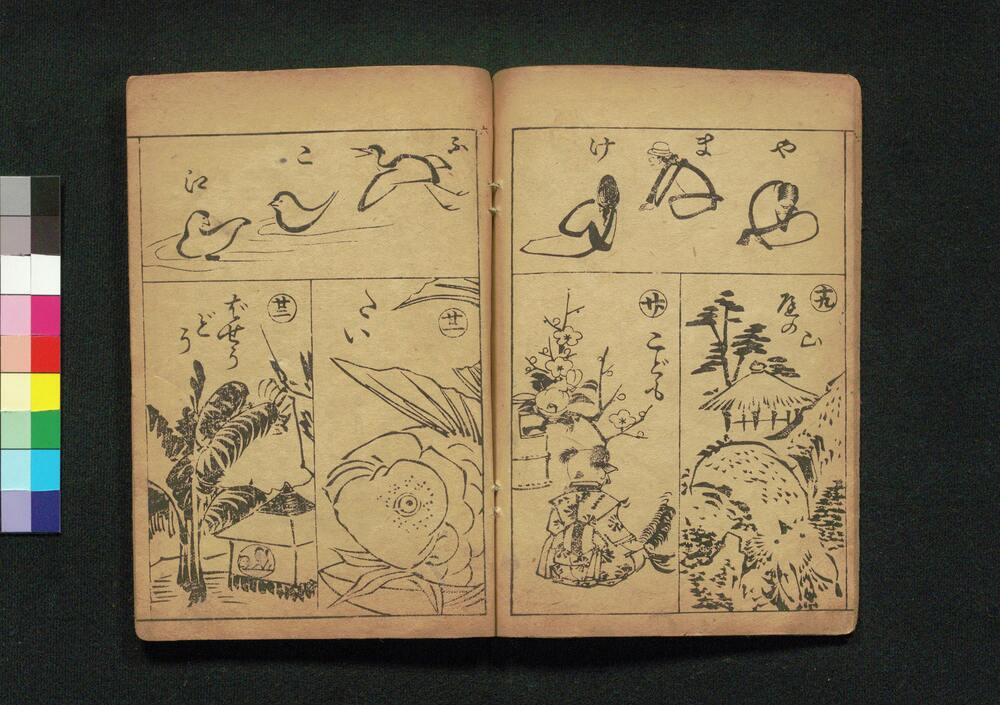 や
ま
け
十九
庭の
山
廿
こども
ふ
こ
江
廿一
たい
廿二
ばせう
どう